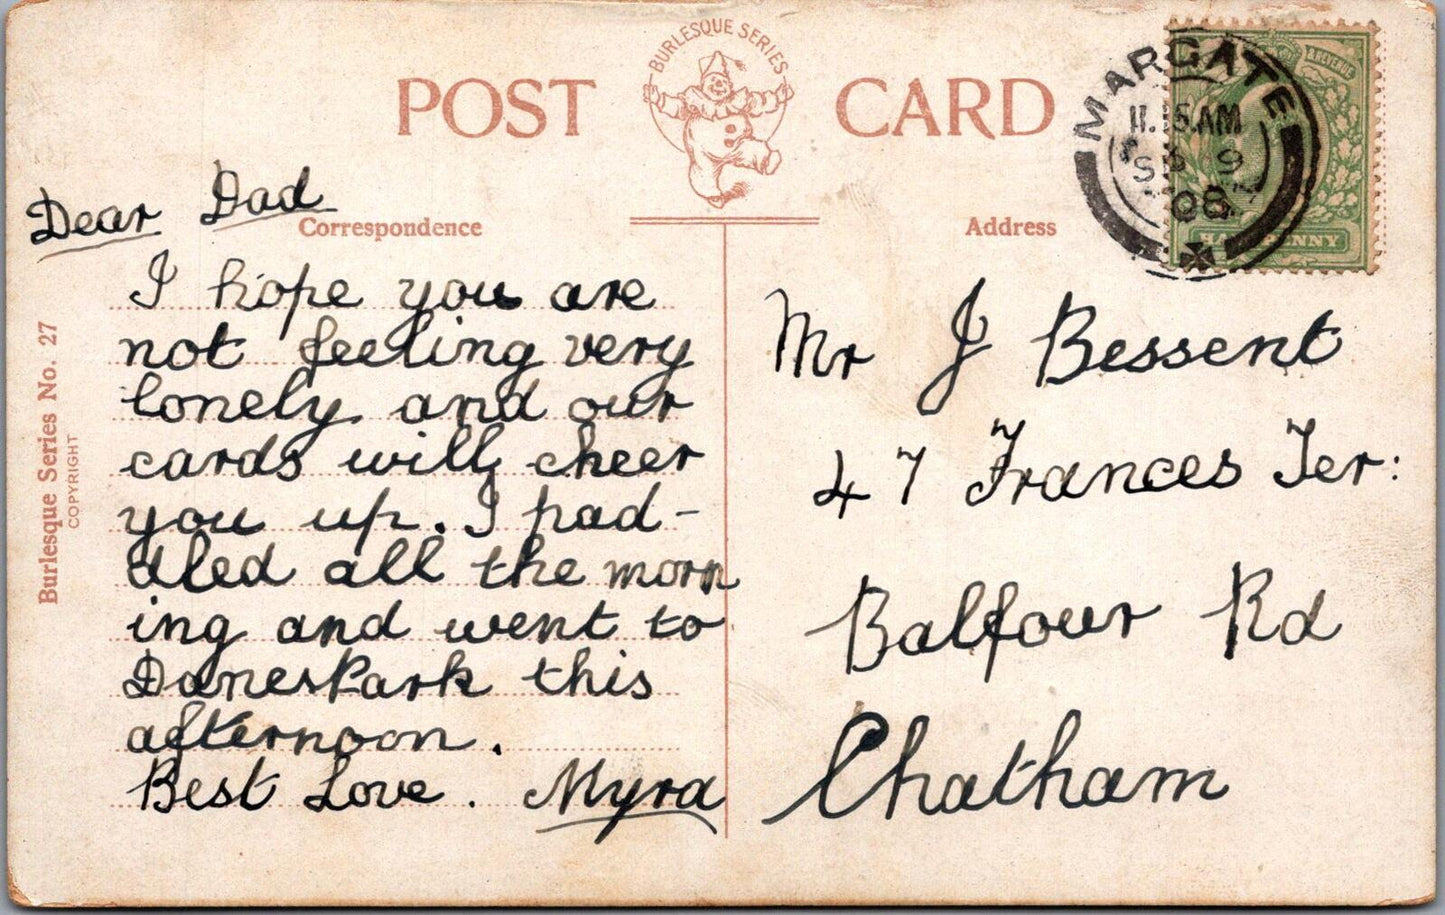 BURLESQUE SERIES
POST CARD
MARGATE
11.15.AM
SP 9
08
& REVENUE
HALFPENNY
Correspondence
Address
Burlesque Series No. 27
COPYRIGHT
Dear Dad
I hope you are
not feeling very
lonely and our
cards will cheer
you up. I pad-
dled all the morn
ing and went to
Danes Park this
afternoon.
Best Love. Myra
Mr J Bessent
47 Frances Ter:
Balfour Rd
Chatham